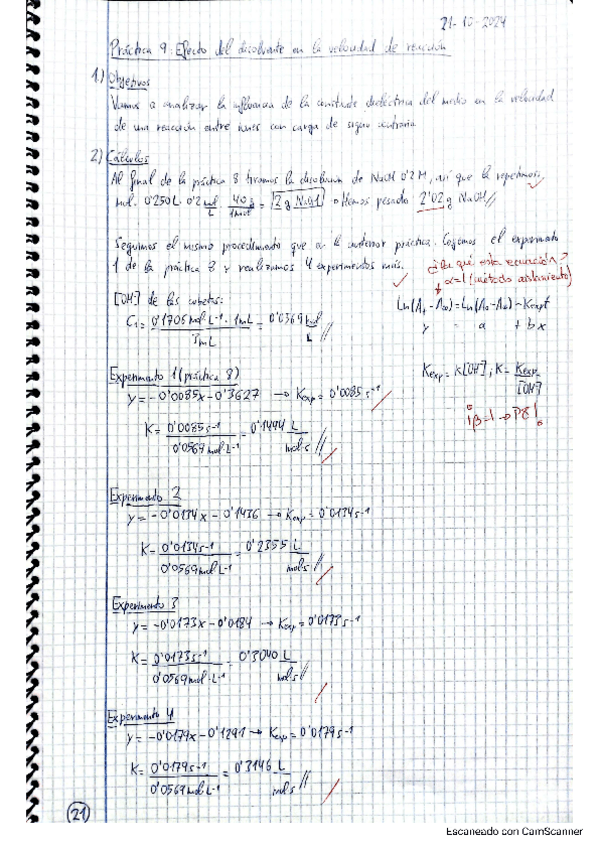 21-10-2024
Práctica 9: Efecto del disolvente en la velocidad de reacción
1) Objetivos
Vamos a analizar la influencia de la constante dieléctrica del medio en la velocidad
de una reacción entre iones con carga de signo contrario
2) Cálculos
Al final de la práctica 8 tiramos la disolución de NaOH 0'2 M, así que la repetimos:
0'250L · 0'2 mol/L · 40 g/1mol = 2 g NaOH → Hemos pesado 2'02 g NaOH //
Seguimos el mismo procedimiento que en la anterior práctica. Cogemos el experimento
1 de la práctica 8 y realizamos 4 experimentos más.
¿De qué esta ecuación?
α=1 (método aislamiento)
[OH-] de las cubetas:
Ln(At - A∞) = Ln(A0 - A∞) - Kexp t
y = a + bx
C1 = 0'1706 mol L-1 · 1mL / 3mL = 0'0569 mol/L //
Kexp = K[OH-], K = Kexp/[OH-]
¡β=1 → P8!
Experimento 1 (práctica 8)
y = -0'0085x - 0'3627 → Kexp = 0'0085 s-1
K = 0'0085 s-1 / 0'0569 mol·L-1 = 0'1494 L/mol·s //
Experimento 2
y = -0'0134x - 0'1436 → Kexp = 0'0134 s-1
K = 0'0134 s-1 / 0'0569 mol L-1 = 0'2355 L/mol·s //
Experimento 3
y = -0'0173x - 0'0184 → Kexp = 0'0173 s-1
K = 0'0173 s-1 / 0'0569 mol·L-1 = 0'3040 L/mol·s //
Experimento 4
y = -0'0179x - 0'1291 → Kexp = 0'0179 s-1
K = 0'0179 s-1 / 0'0569 mol·L-1 = 0'3146 L/mol·s //
21
Escaneado con CamScanner